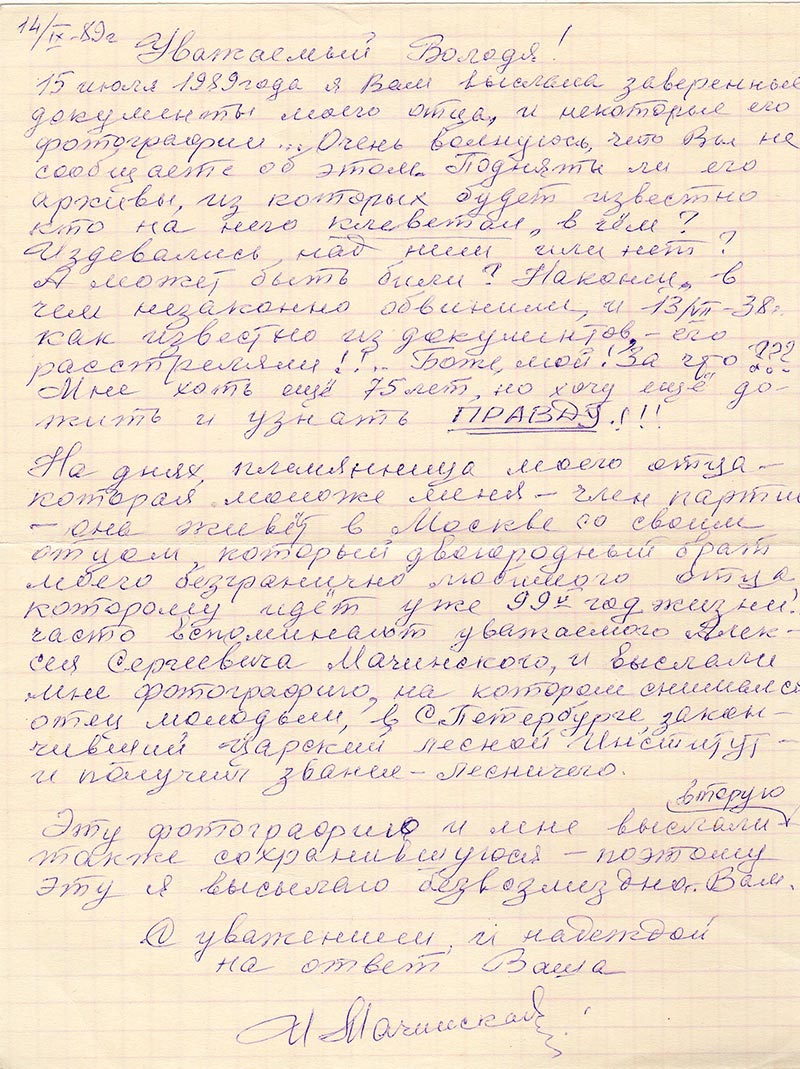 14/IX-89г
Уважаемый Володя!
15 июля 1989 года я Вам выслала заверенные
документы моего отца, и некоторые его
фотографии... Очень волнуюсь, что Вы не
сообщаете об этом. Подняты ли его
архивы, из которых будет известно
кто на него клеветал, в чём?
Издевались над ним или нет?
А может быть били? Наконец, в
чем незаконно обвинили, и 13/VII-38г.
как известно из документов, - его
расстреляли!!.. Боже, мой! За что???
Мне хоть ещё 75 лет, но хочу ещё до-
жить и узнать ПРАВДУ!!!
На днях, племянница моего отца -
которая моложе меня - член партии
- она живёт в Москве со своим
отцом, который двоюродный брат
моего безгранично любимого отца
которому идёт уже 99й год жизни!
часто вспоминают уважаемого Алек-
сея Сергеевича Мачинского, и выслали
мне фотографию, на котором снимался
отец молодым, в С.Петербурге, закон-
чивший Царский лесной Институт -
и получил звание - лесничего.
вторую
Эту фотографию и мне выслали
также сохранившуюся - поэтому
эту я высылаю безвозмездно Вам.
С уважением, и надеждой
на ответ Ваша
И Мачинская!